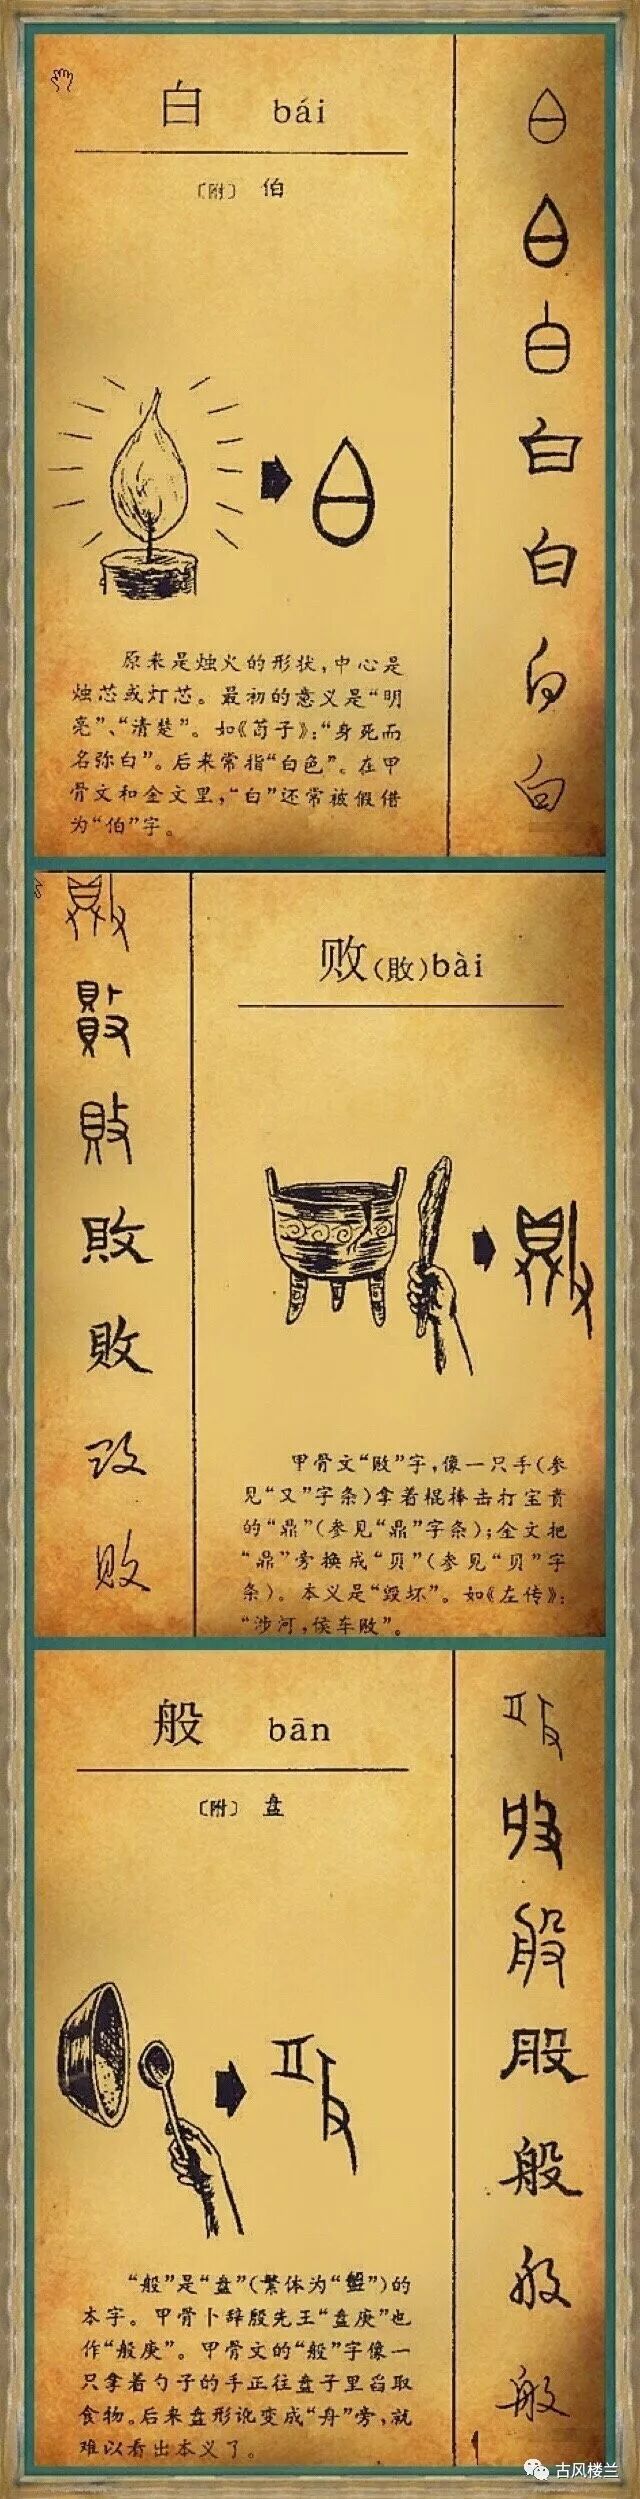 白 bái
〔附〕 伯
原来是烛火的形状，中心是
烛芯或灯芯。最初的意义是“明
亮”、“清楚”。如《荀子》：“身死而
名弥白”。后来常指“白色”。在甲
骨文和金文里，“白”还常被假借
为“伯”字。
败(敗)bài
甲骨文“败”字，像一只手(参
见“又”字条)拿着棍棒击打宝贵
的“鼎”(参见“鼎”字条)；金文把
“鼎”旁换成“贝”(参见“贝”字
条)。本义是“毁坏”。如《左传》：
“涉河，侯车败”。
般 bān
〔附〕 盘
“般”是“盘”(繁体为“盤”)的
本字。甲骨卜辞殷先王“盘庚”也
作“般庚”。甲骨文的“般”字像一
只拿着勺子的手正往盘子里舀取
食物。后来盘形讹变成“舟”旁，就
难以看出本义了。
白
白
白
白
白
白
白
敗
敗
敗
敗
敗
败
败
般
般
般
般
般
般
般
古风楼兰